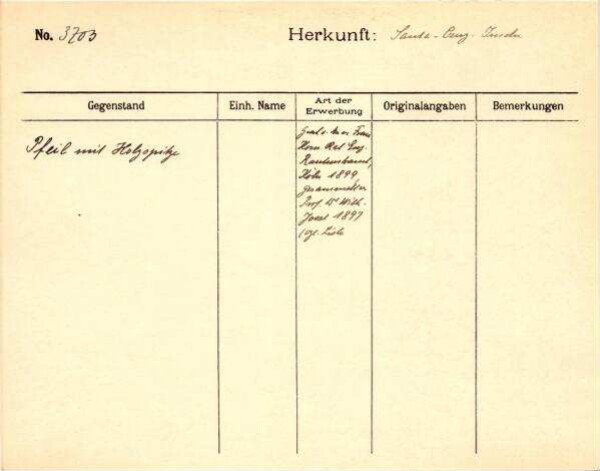 No. 3703
Herkunft: Santa-Cruz-Inseln
Gegenstand
Einh. Name
Art der
Erwerbung
Originalangaben
Bemerkungen
Pfeil mit Holzspitze
Frau
Rautenstrauch,
Köln 1899,
gesammelt v.
Prof. Dr Wilh.
Joest 1897
vgl. Liste